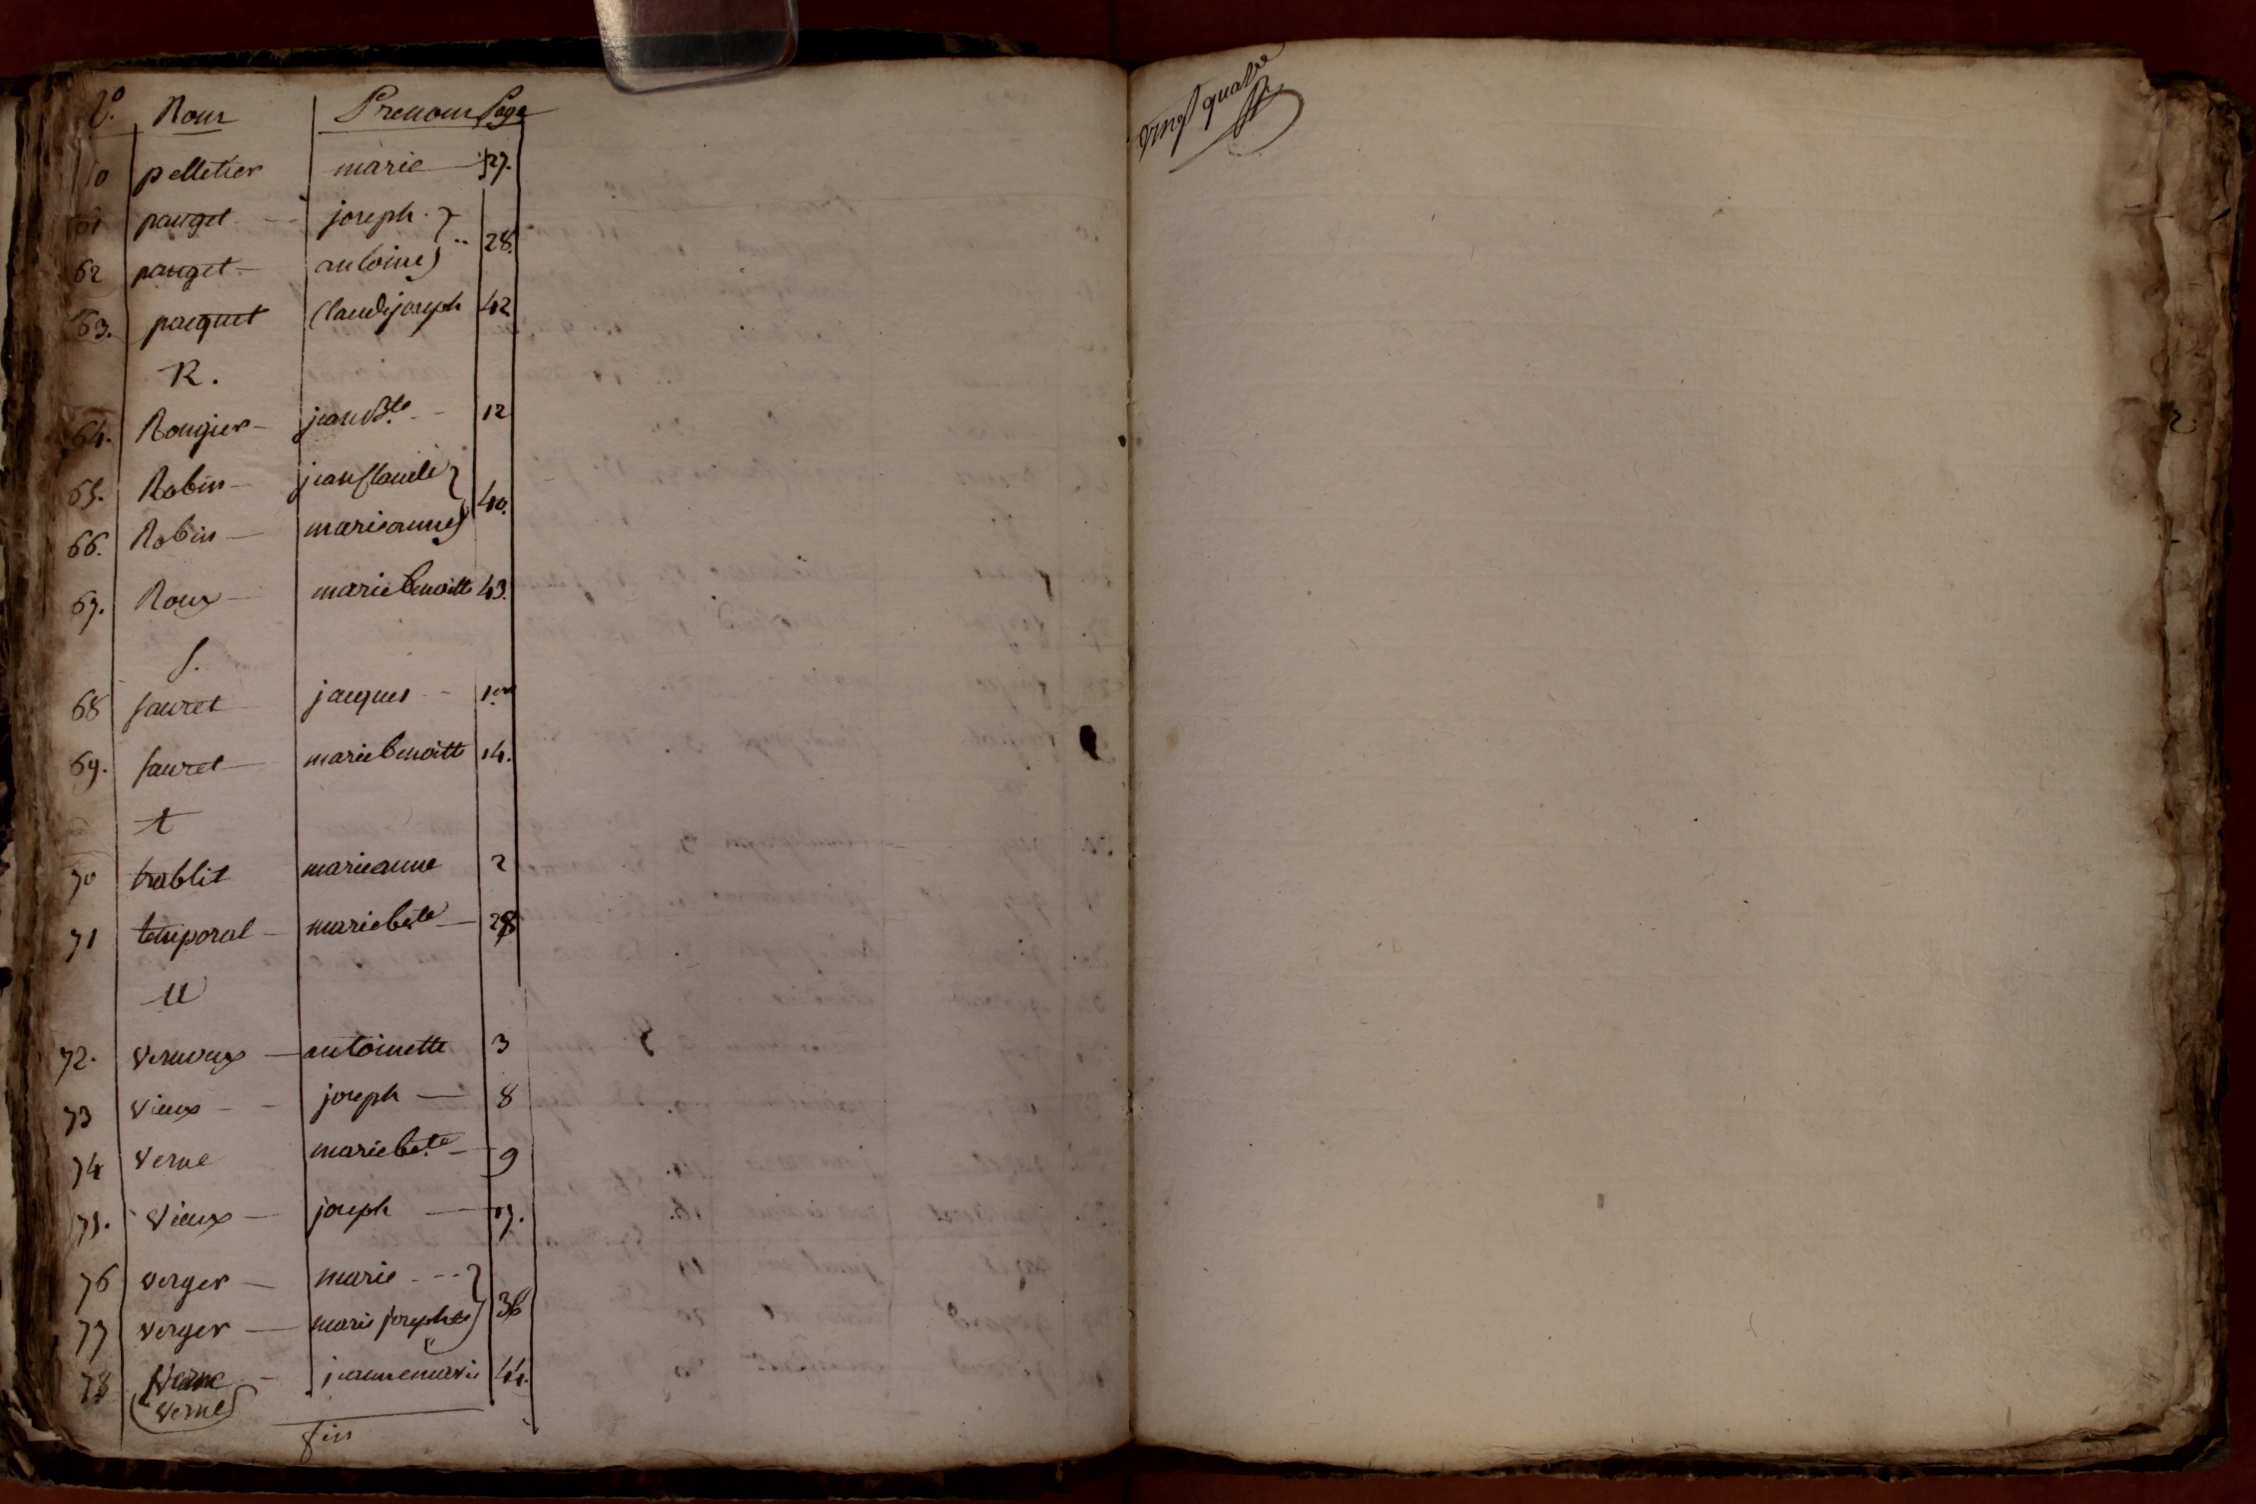 N.o Noms Prenoms Page
60 pelletier marie 27.
61 pauget joseph
62 pauget antoine 28.
63. paquet Claude joseph 42
R.
64. Rougier jean B.te 12
65. Robin jean Claude
66. Robin marieanne 40.
67. Roux marie benoitte 43.
S.
68 sauret jacques 1.er
69. sauret marie benoitt 14.
t
70 trablit marieanne 2
71 temporal marie b.te 28
U
72. vernoux antoinette 3
73 vieux joseph 8
74 verne marie b.te 9
75. vieux joseph 17.
76 verger marie
77 verger marie josephte 36
78 verne jeanne marie 44.
(verne)
fin
vingt quatre